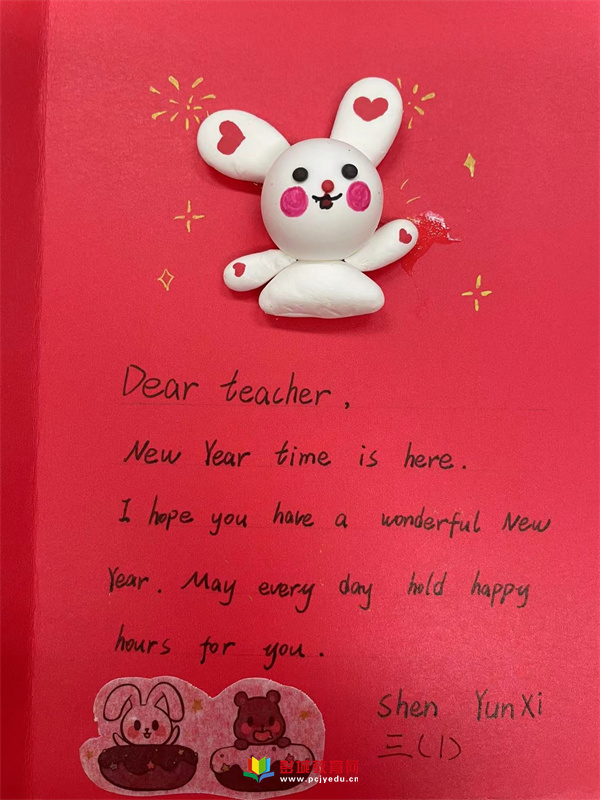 Dear teacher,
New Year time is here.
I hope you have a wonderful New
Year. May every day hold happy
hours for you.
Shen YunXi
三(1)
彭城教育网
www.pcjyedu.cn